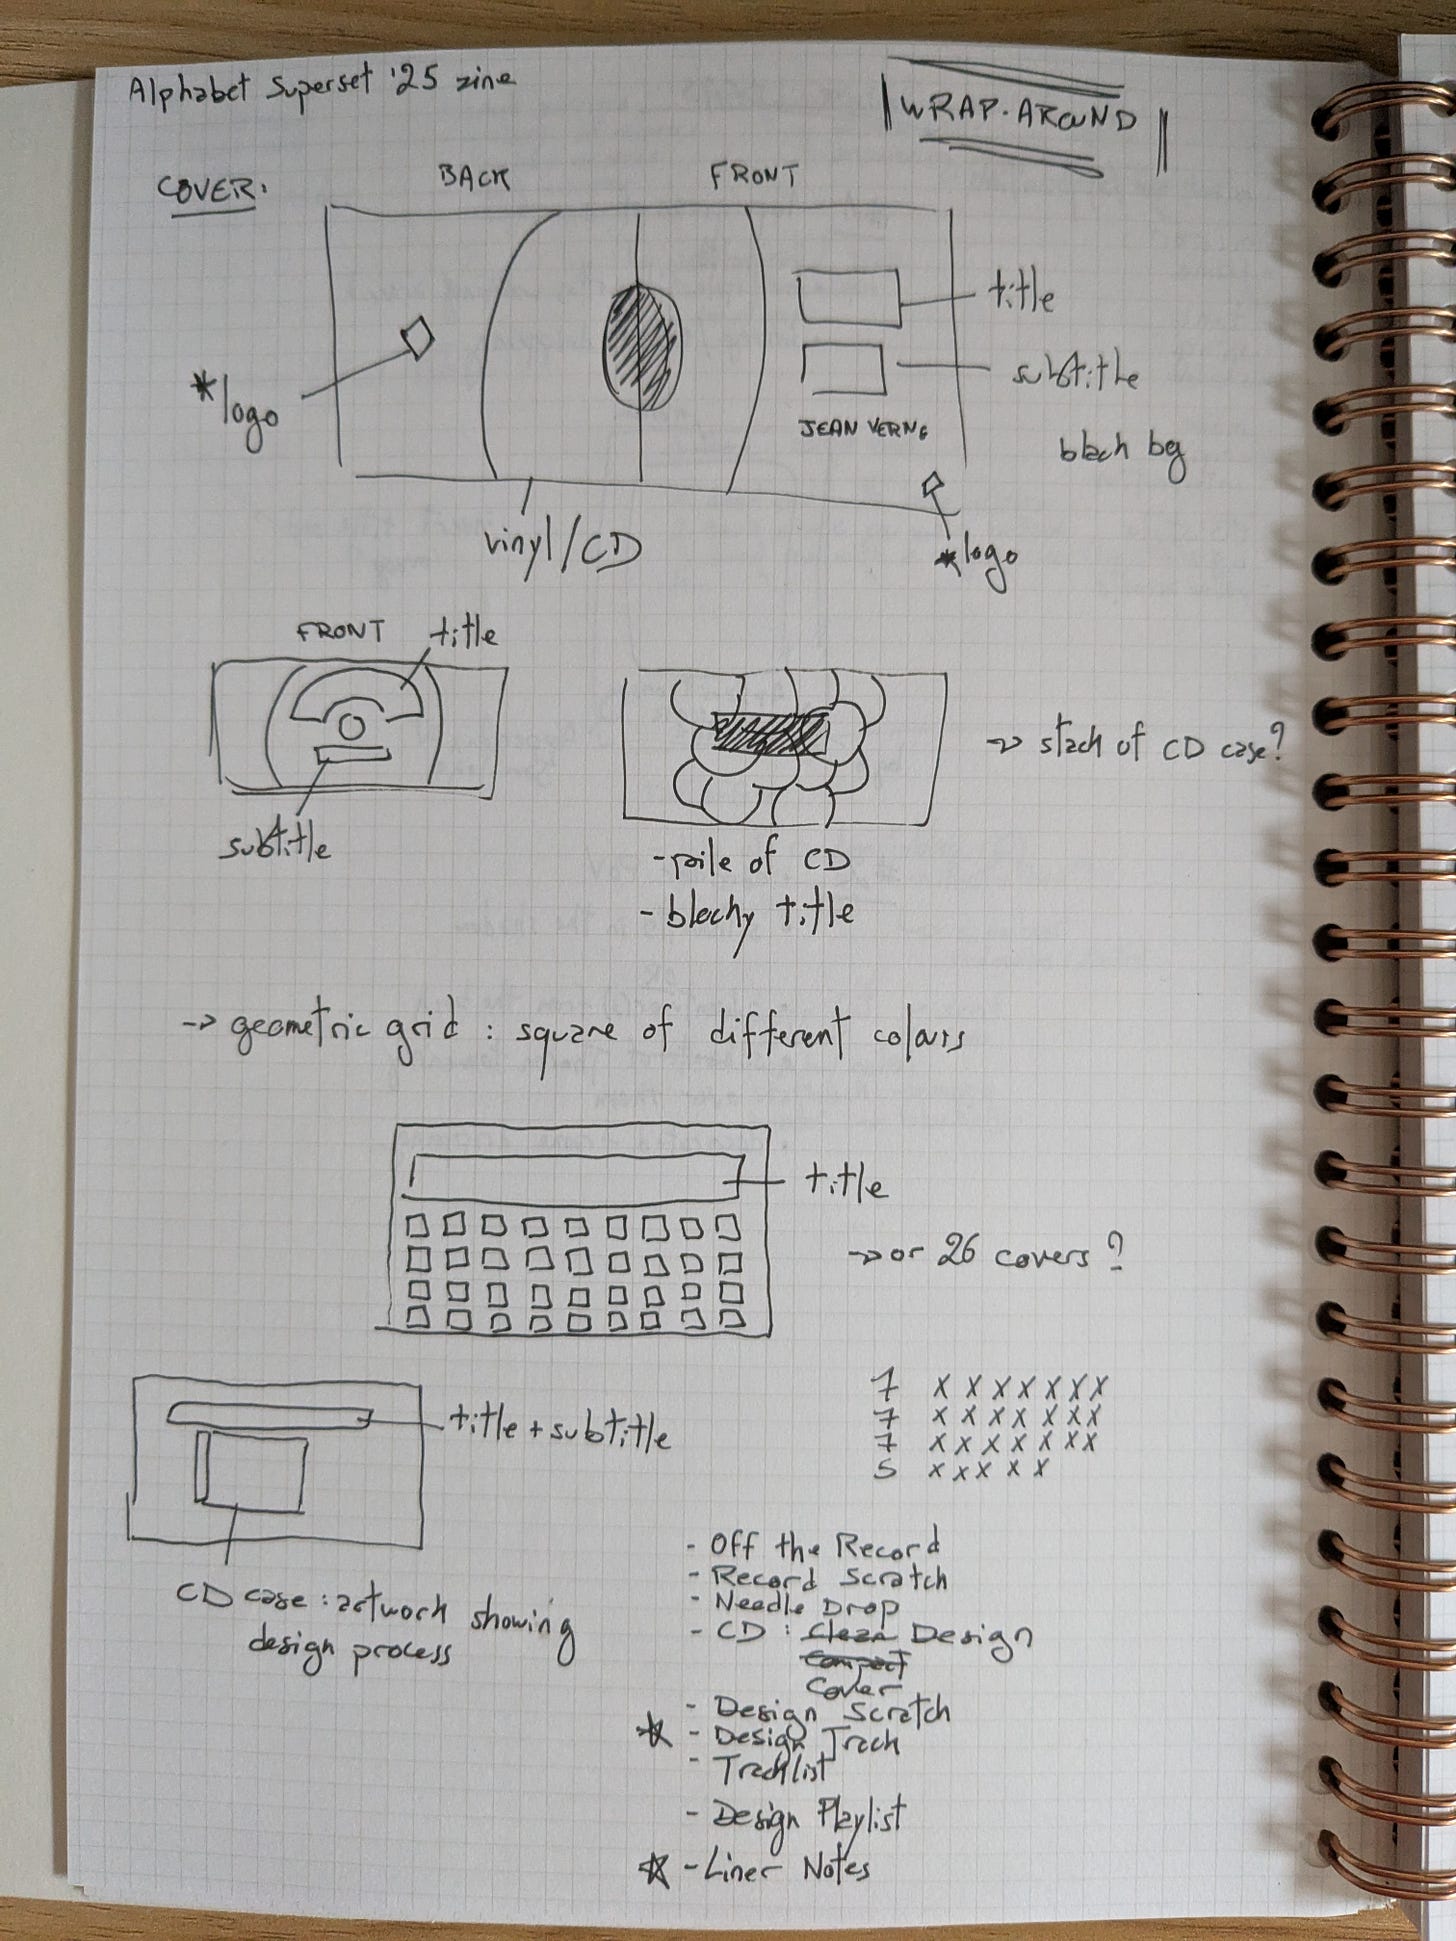 Alphabet Superset '25 zine
WRAP-AROUND
COVER:
BACK
FRONT
title
*logo
subtitle
JEAN VERNE
black bg
vinyl/CD
*logo
FRONT
title
subtitle
→ stack of CD case?
- pile of CD
- blocky title
→ geometric grid : square of different colours
title
→ or 26 covers?
title + subtitle
7 x x x x x x x
7 x x x x x x x
7 x x x x x x x
5 x x x x x
CD case : artwork showing
design process
- Off the Record
- Record Scratch
- Needle Drop
- CD : Clean Design
Compact
Cover
- Design Scratch
☆ - Design Track
- Tracklist
- Design Playlist
☆ - Liner Notes